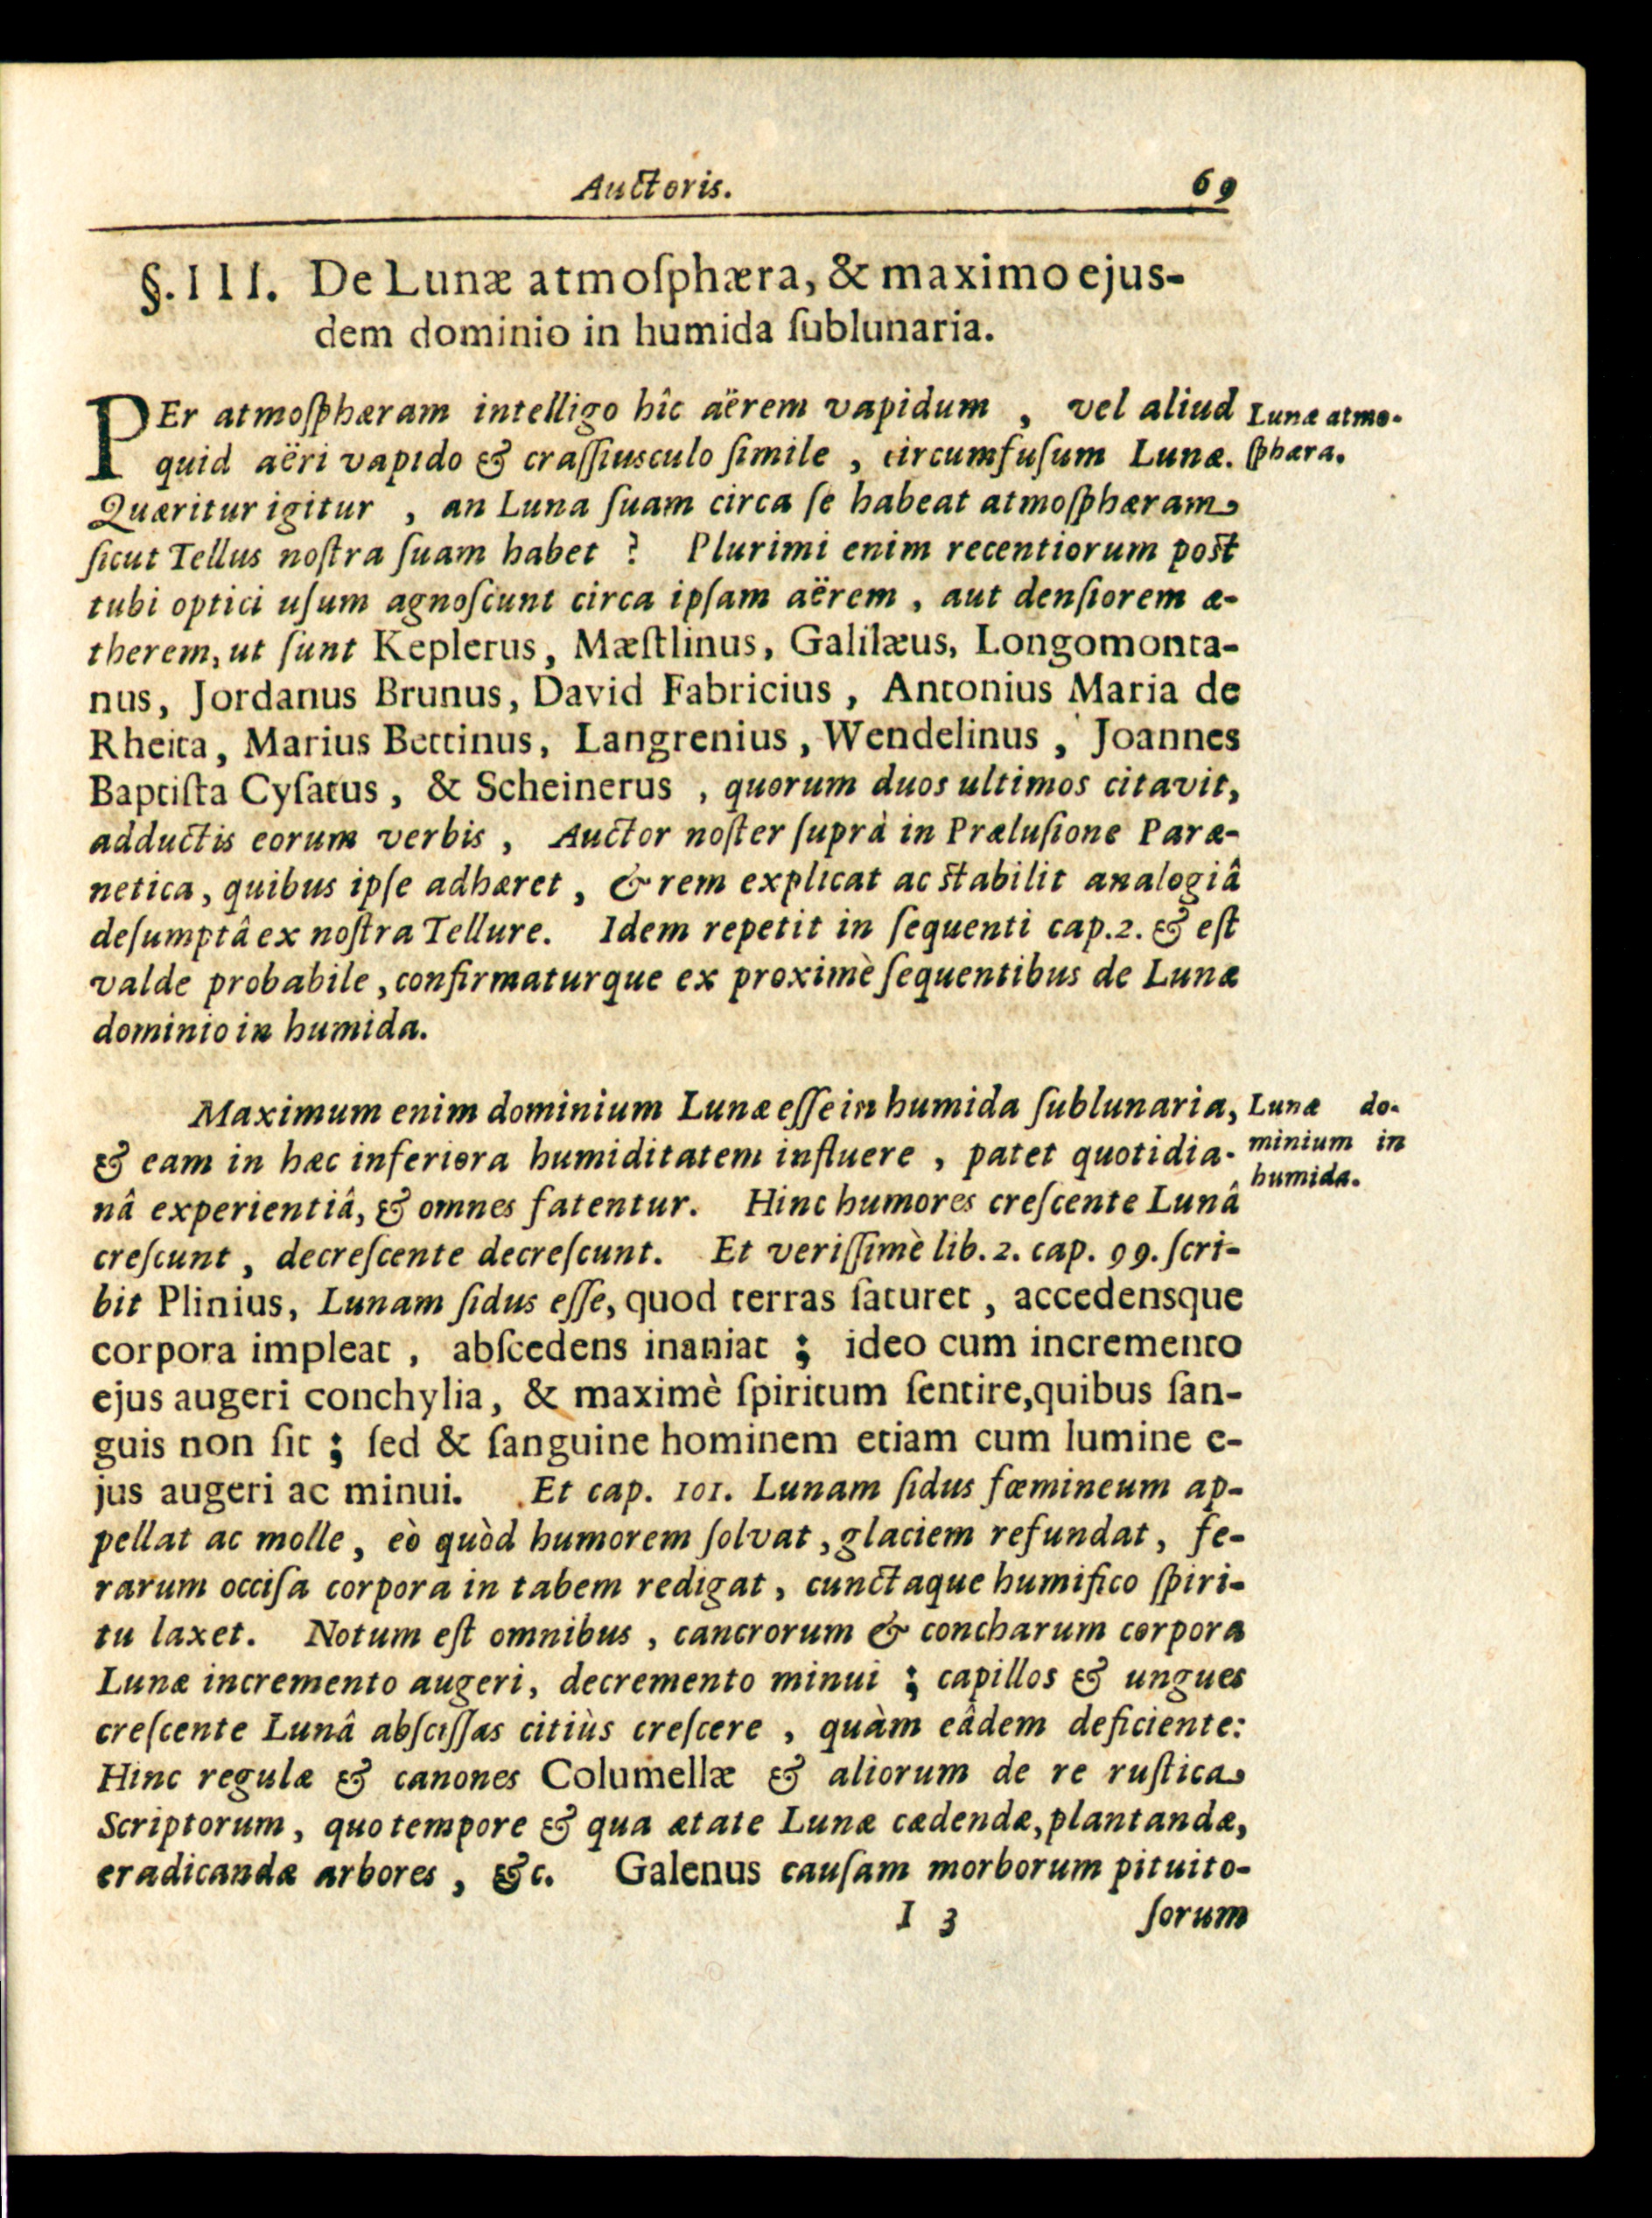 Auctoris. 69
§. III. De Lunæ atmoſphæra, & maximo ejus-
dem dominio in humida ſublunaria.
PEr atmoſphæram intelligo hîc aërem vapidum , vel aliud
quid aëri vapido & craſſiusculo ſimile , circumfuſum Lunæ.
Lunæ atmo-
ſphæra.
Quæritur igitur , an Luna ſuam circa ſe habeat atmoſphæram
ſicut Tellus noſtra ſuam habet ? Plurimi enim recentiorum poſt
tubi optici uſum agnoſcunt circa ipſam aërem , aut denſiorem æ-
therem, ut ſunt Keplerus, Mæſtlinus, Galilæus, Longomonta-
nus, Jordanus Brunus, David Fabricius , Antonius Maria de
Rheita, Marius Bettinus, Langrenius, Wendelinus , Joannes
Baptiſta Cyſatus , & Scheinerus , quorum duos ultimos citavit,
adductis eorum verbis , Auctor noſter ſuprà in Præluſione Paræ-
netica, quibus ipſe adhæret , & rem explicat ac ſtabilit analogiâ
deſumptâ ex noſtra Tellure. Idem repetit in ſequenti cap.2. & eſt
valde probabile , confirmaturque ex proximè ſequentibus de Lunæ
dominio in humida.
Maximum enim dominium Lunæ eſſe in humida ſublunaria,
& eam in hæc inferiora humiditatem influere , patet quotidia-
Lunæ do-
minium in
humida.
nâ experientiâ, & omnes fatentur. Hinc humores creſcente Lunâ
creſcunt , decreſcente decreſcunt. Et veriſſimè lib. 2. cap. 99. ſcri-
bit Plinius, Lunam ſidus eſſe, quod terras ſaturet , accedensque
corpora impleat , abſcedens inaniat ; ideo cum incremento
ejus augeri conchylia, & maximè ſpiritum ſentire,quibus ſan-
guis non ſit ; ſed & ſanguine hominem etiam cum lumine e-
jus augeri ac minui. Et cap. 101. Lunam ſidus fœmineum ap-
pellat ac molle, eò quòd humorem ſolvat , glaciem refundat, fe-
rarum occiſa corpora in tabem redigat , cunctaque humifico ſpiri-
tu laxet. Notum eſt omnibus , cancrorum & concharum corpora
Lunæ incremento augeri, decremento minui ; capillos & ungues
creſcente Lunâ abſciſſas citiùs creſcere , quàm eâdem deficiente:
Hinc regulæ & canones Columellæ & aliorum de re ruſtica
Scriptorum, quo tempore & qua ætate Lunæ cædendæ, plantandæ,
eradicandæ arbores , &c. Galenus cauſam morborum pituito-
I 3 ſorum